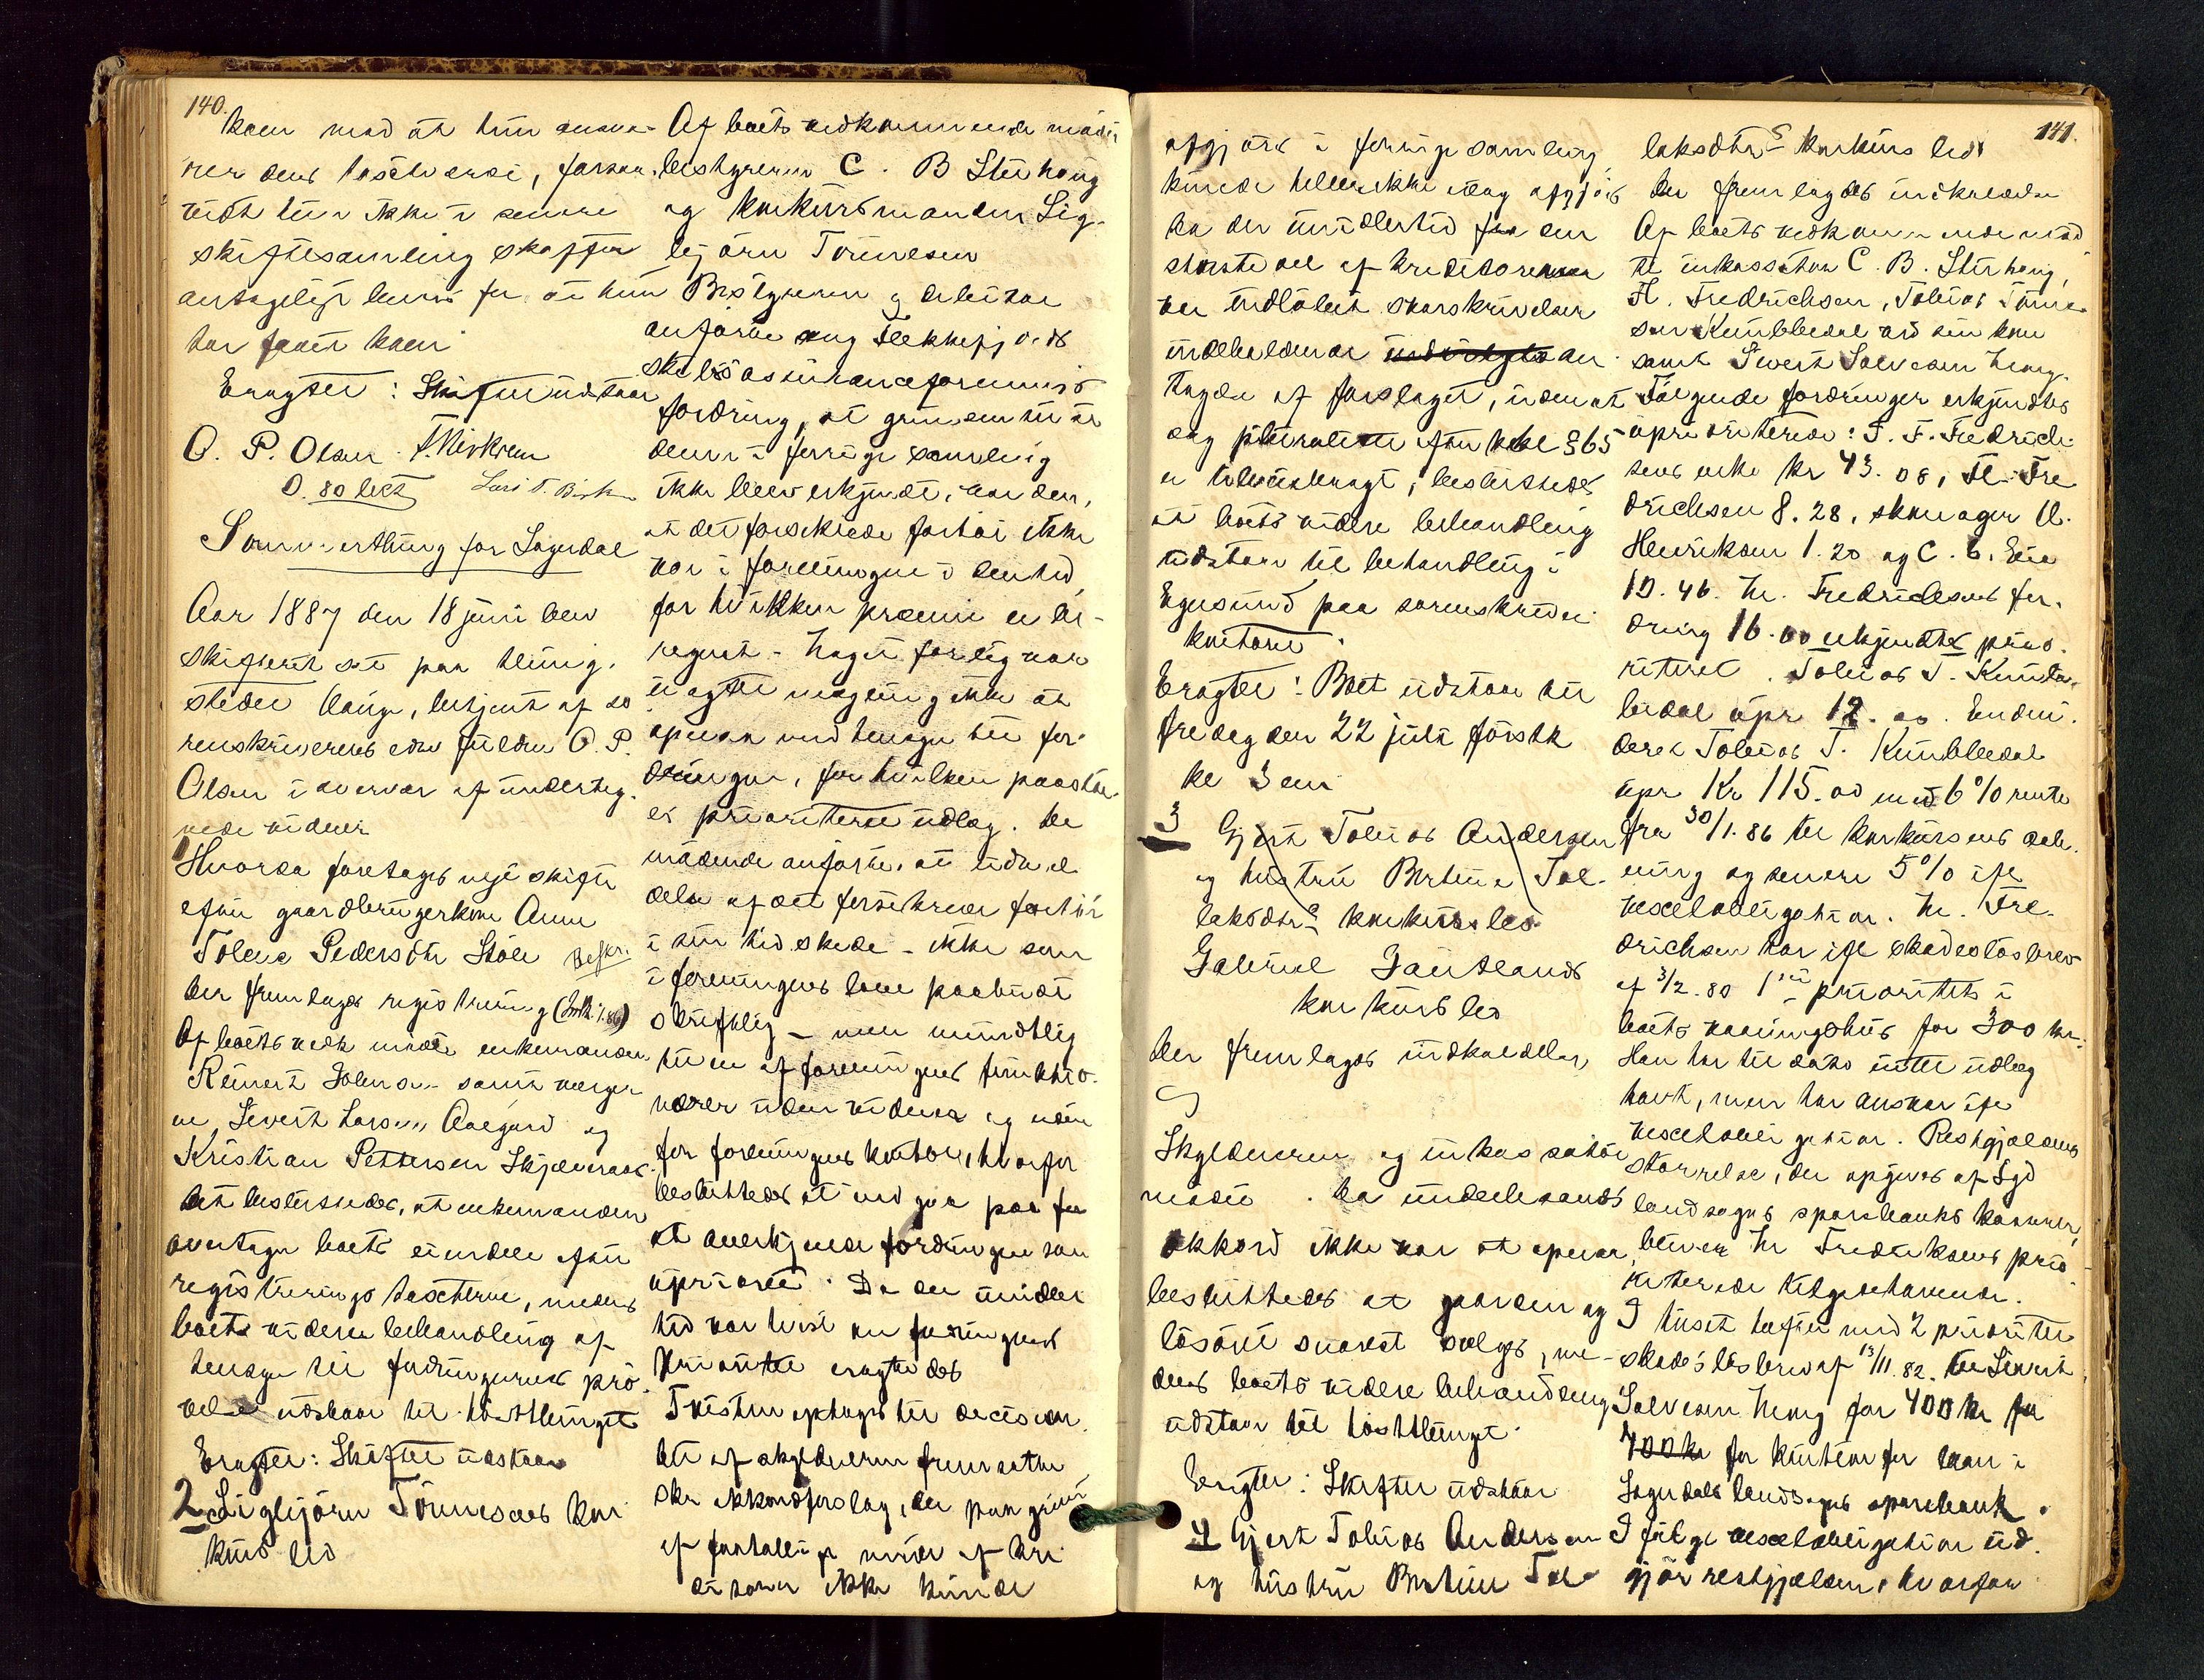 140.
koen mod at hun ansva-
rer dens taxtværdi, forsaa-
vidt hun ikke i senere
skiftesamling skaffer
antageligt bevis for at hun
har faaet koen
Eragtet: Skiftet udstaar
O. P. Olsen T. Kirkren
0.80 bet
Sommerthing for Sogndal
Aar 1887 den 18 juni blev
skifteret sat paa thing-
stedet Hauge, betjent af so
renskriverens edsv fuldm O. P.
Olsen i overvær af underteg-
nede vidner
Hvorda foretoges nyt skifte
efter gaardbrugerkone Anne
Tolena Pedersdtr Støle Beskr.
Der fremlagdes registrering
Af boets vedk mødte enkemanden
Reinert Johnsen samt verger
ne, Sivert Larsen Aagard og
Kristian Pettersen Skjævraas-
Det besluttedes, at enkemanden
overtager boets eiendele efter
registreringstaxterne, medens
boets videre behandling af
hensyn til fordringernes prø-
velse udstaar til høstthinget
Eragtet: Skiftet udstaar
2 Sigbjørn Tønnesens kon-
kurs bo
Af boets vedkommende mødte
bestyreren C. B. Stuhaug
og konkursmanden Sig-
bjørn Tønnesen
Bestyreren og debitor
anførte ang Flekkefjords
skibsassuranceforenings
fordring, at grunden til at
denne i forrige samling
ikke blev erkjendt, var den,
at det forsikrede fartøi ikke
var i foreningen i den tid,
for hvilken præmie er be-
regnet - Noget forlig var
uagtet mægling ikke at
opnaa med hensyn til for-
dringen, for hvilken paastaa-
es prioriteret udlæg. De
mødende anførte, at udmel
delse af det forsikrede fartøi
i sin tid skede - ikke som
i foreningens love paabudt
skriftlig - men mundtlig
til en af foreningens funktio-
nærer uden vidner og uden
for foreningens kontor, hvorfor
besluttedes at indgaa paa for
at anerkjende fordringen som
uprioritet. Da der imidler
tid var tvist om fordringens
prioritet eragtedes
Tvisten optages til decision.
Det af skyldneren fremsatte
akkordforslag, der paa grund
af faatallig møde af kre
ditorer ikke kunde
141.
afgjøres i forrige samling,
kunde heller ikke idag afgjøres
da der imidlertid fra den
største del af kreditorerne
var indløbet skrivelser
indeholdende an
tagelse af forslaget, idet at
dog pluralitet efter kkl § 65
er tilveiebragt, besluttedes
at boets videre behandling
udstaar til behandling i
Egersund paa sorenskriver
kontoret.
Eragtet: Boet udstaar til
fredag den 22 juli førstk
kl 3 em
3 Gjert Tobias Andersen
og hustru Bertine Tol-
laksdtrs konkursbo
Gabriel Jøntlands
konkurs bo
Der fremlagdes indkaldelse,
Skyldneren og inkassator
mødte. Da underhaands
akkord ikke var at opnaa,
besluttedes at gaarden og
løsøret snarest sælges, me-
dens boets videre behandling
udstaar til høstthinget.
Eragtet: Skiftet udstaar
4 Gjert Tobias Andersen
og hustru Bertine Tol-
laksdtrs konkurs bo
Der fremlagdes indkaldelse
Af boets vedkommende mød-
te inkassator C. B. Stuhaug,
H. Fredrichsen, Tobias Tønne-
sen Kumbledal ved sin kone
samt Sivert Salvesen Haug.
Følgende fordringer erkjendtes
uprioriterede: T. F. Fredrich-
sens enke kr 43.08, H. Fre
drichsen 8.28, skomager A.
Henriksen 1.20 og C. E. Eie
10.46. Hr. Fredrichsens for-
dring 16.00 erkjendtes prio-
riteret. Tobias T. Kumb-
ledal upr 12.00. Endvi-
dere Tobias T. Kumbledal
upr Kr 115.00 med 6% rente
fra 30/1.86 til konkursens aab-
ning og senere 5% ifl
vexelobligation. Hr. Fre-
drichsen har ifl skadesløsbrev
af 3/2.80 1ste prioritet i
boets vaaningshus for 300 kr.
Han har til dato intet udlæg
havt, men har ansvar ifl
vexelobligation. Restgjældens
størrelse, der opgives af Sog
landsogns sparebanks kasserer,
bliver hr Fredriksens prio-
riterede tilgodehavende.
I huset hefter med 2 prioritet
skadesløsbrev af 13/11.82. til Sivert
Salvesen Haug for 400 kr for
400 kr for kaution for laan i
Sogndals landsogns sparebank.
Ifølge vexelobligation ud-
gjør restgjælden, hvorfor